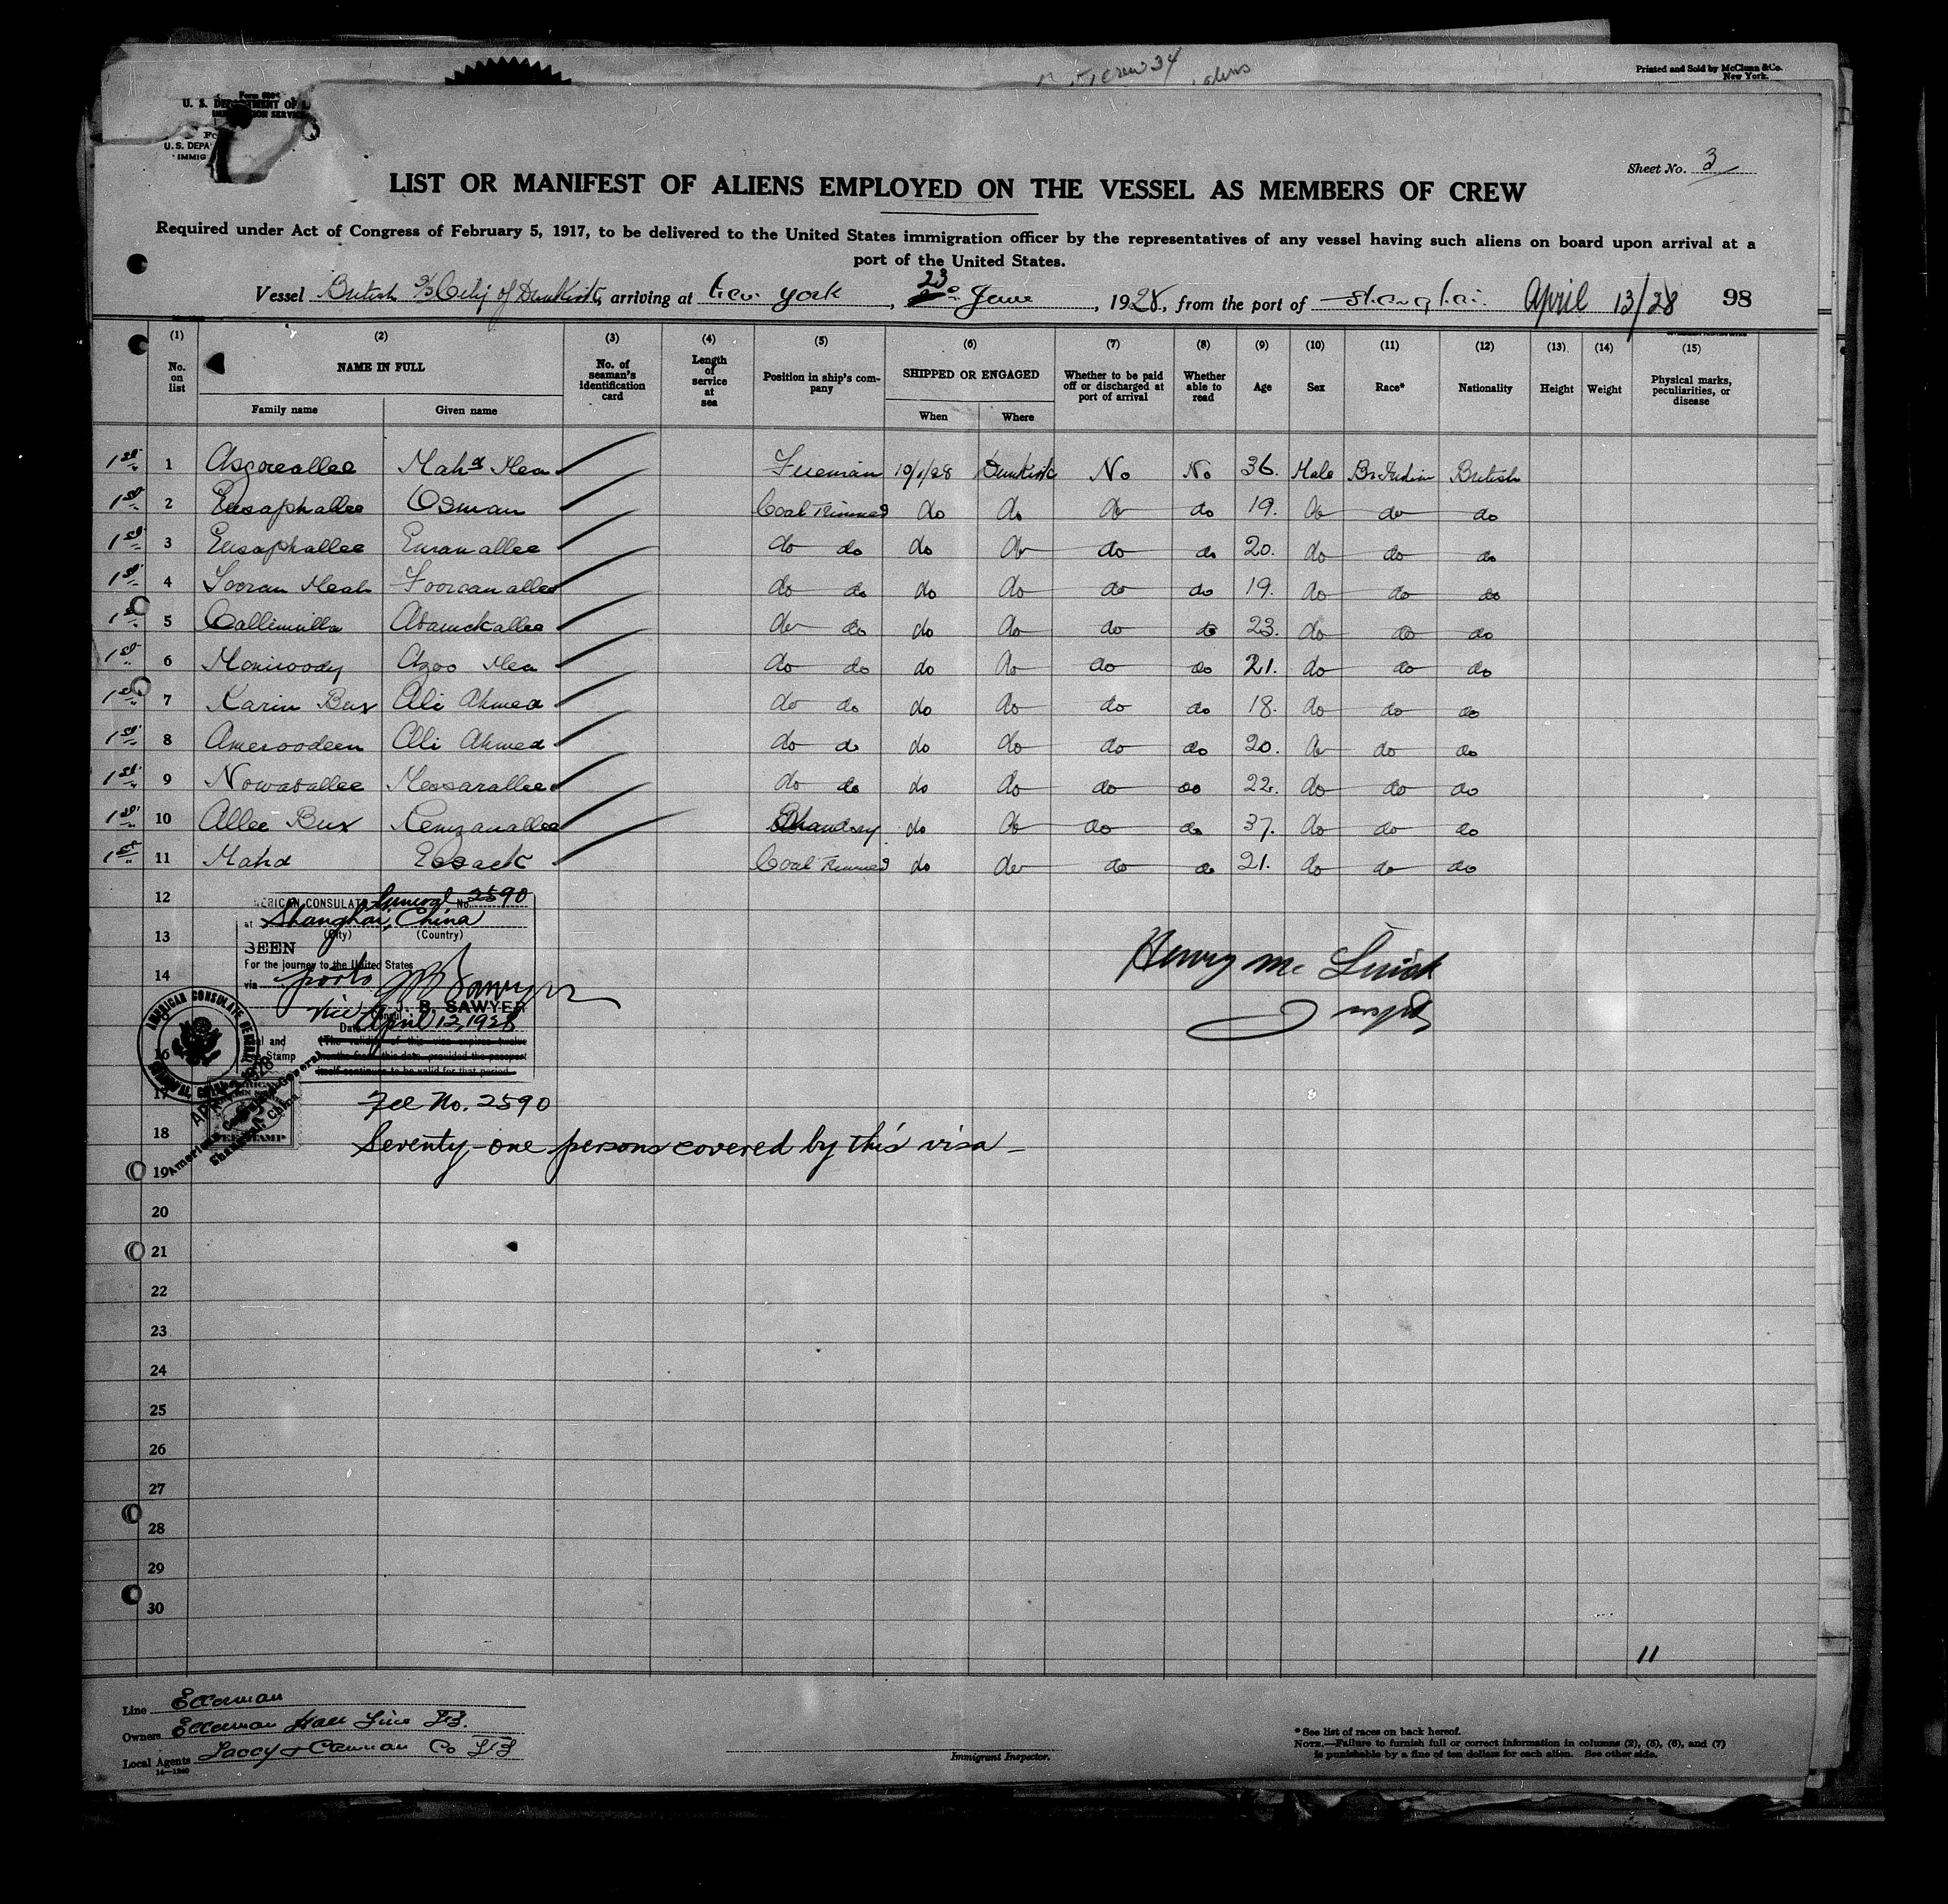 Printed and Sold by McClunn & Co.
New York.
Form 680
U. S. DEPARTMENT OF L
IMMIGRATION SERVICE
U. S. DEPA
IMMIG
Sheet No. 3
LIST OR MANIFEST OF ALIENS EMPLOYED ON THE VESSEL AS MEMBERS OF CREW
Required under Act of Congress of February 5, 1917, to be delivered to the United States immigration officer by the representatives of any vessel having such aliens on board upon arrival at a
port of the United States.
Vessel British S/S City of Dunkirk, arriving at New York, 23 June, 1928, from the port of Shanghai. April 13/28 98
(1) (2) (3) (4) (5) (6) (7) (8) (9) (10) (11) (12) (13) (14) (15)
No. on list NAME IN FULL No. of seaman's identification card Length of service at sea Position in ship's company SHIPPED OR ENGAGED Whether to be paid off or discharged at port of arrival Whether able to read Age Sex Race* Nationality Height Weight Physical marks, peculiarities, or disease
Family name Given name When Where
1st 1 Asgoreallee Mahd Mea Fireman 10/1/28 Dunkirk No No 36. Male Br Indian British
1st 2 Eusaphallee Osman Coal Trimmer do do do do 19. do do do
1st 3 Eusaphallee Emanallee do do do do do do 20. do do do
1st 4 Sooran Meah do do do do do do 19. do do do
1st 5 Callimulla Abaruckallee do do do do do do 23. do do do
1st 6 Moniroody Azoo Mea do do do do do do 21. do do do
1st 7 Karim Bux Ali Ahmed do do do do do do 18. do do do
1st 8 Ameroodeen Ali Ahmed do do do do do do 20. do do do
1st 9 Nowaballee Messarallee do do do do do do 22. do do do
1st 10 Allee Bux Remzanallee Bhandary do do do do 37. do do do
1st 11 Mahd Essack Coal Trimmer do do do do 21. do do do
12
AMERICAN CONSULATE General No. 2590
at Shanghai, China
(City) (Country)
13
SEEN
For the journey to the United States
14
via ports
J. B. SAWYER
Vice Consul
Date April 12, 1928
(The validity of this visa expires twelve
months from this date, provided the passport
itself continues to be valid for that period.
Seal and
Fee Stamp
AMERICAN CONSULATE GENERAL
SHANGHAI, CHINA
16
17
Fee No. 2590
18
Seventy-one persons covered by this visa
American Consulate General
Shanghai, China
Henry Mc
19
20
21
22
23
24
25
26
27
28
29
30
11
Line Ellerman
Owners Ellerman Hall Line Ltd.
Local Agents Co Ltd
14—1240
Immigrant Inspector.
* See list of races on back hereof.
NOTE.—Failure to furnish full or correct information in columns (2), (5), (6), and (7)
is punishable by a fine of ten dollars for each alien. See other side.